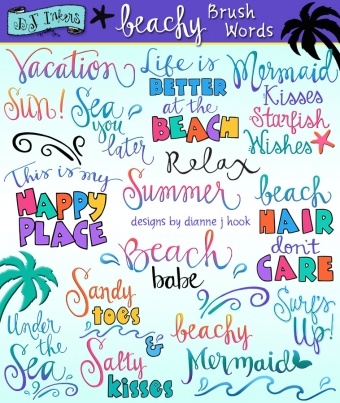 DJ Inkers
beachy Brush Words
Vacation
Life is
BETTER
at the
BEACH
Mermaid
Kisses
Starfish
Wishes
Sun!
Sea
you
later
Relax
This is my
HAPPY
PLACE
Summer
designs by dianne j hook
beach
HAIR
don't
CARE
Beach
babe
Sandy
toes
&
Salty
kisses
Surf's
Up!
Under
the
Sea
beachy
Mermaid